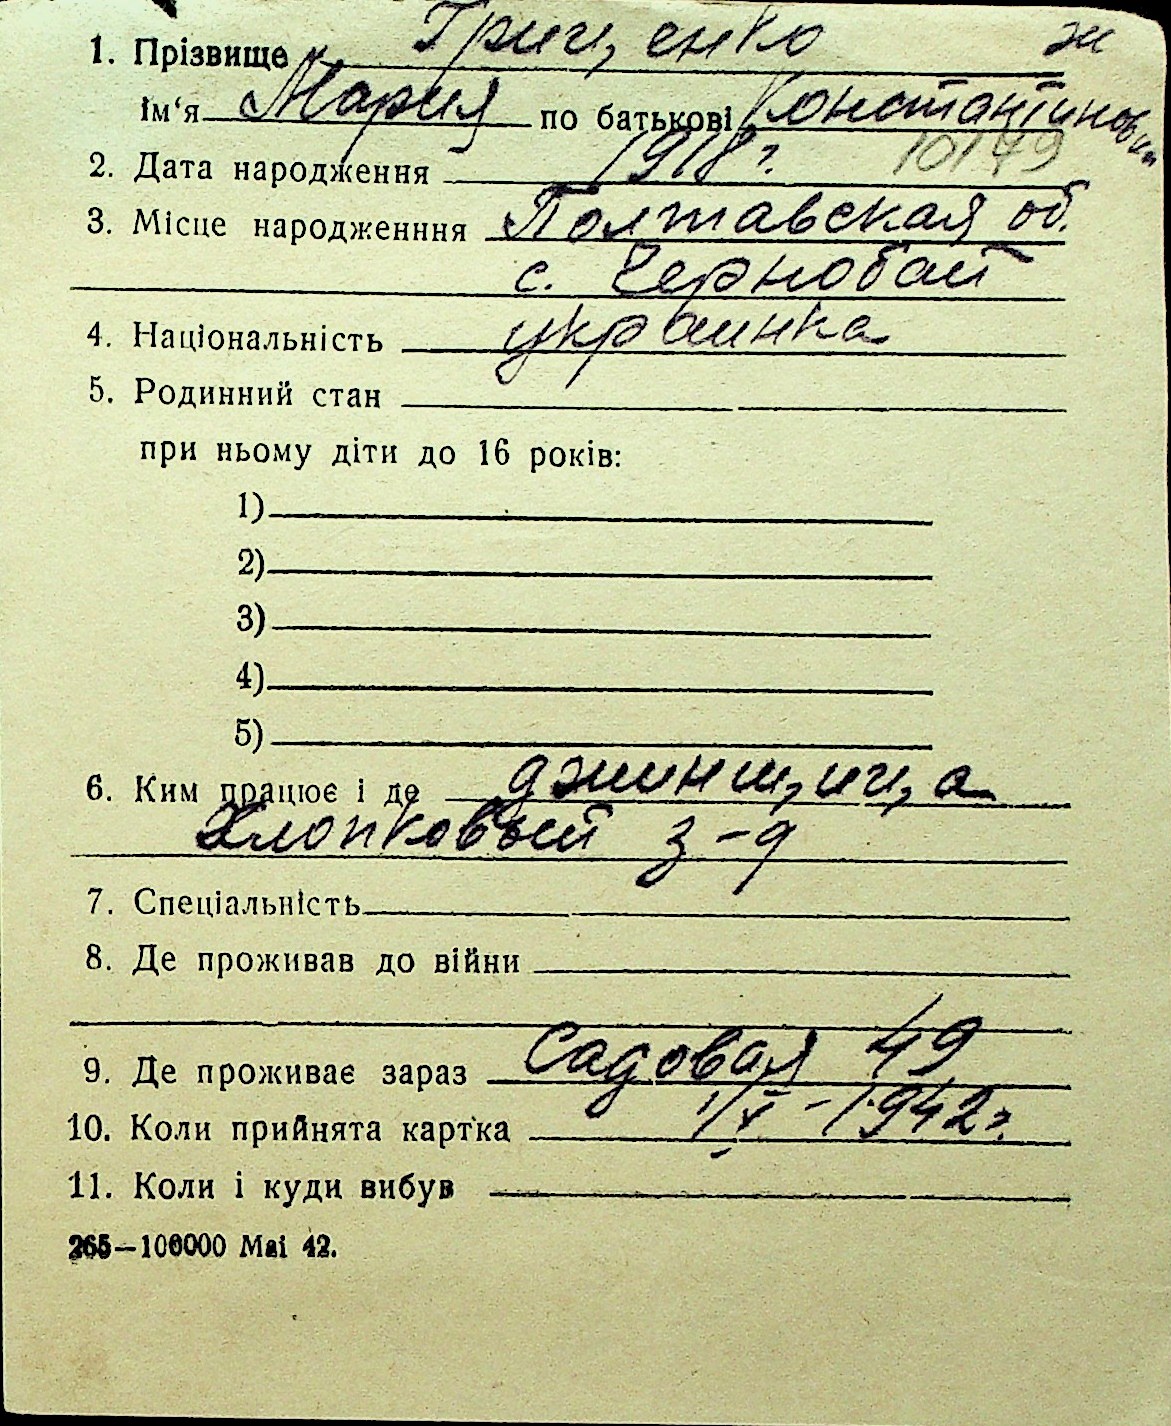 1. Прізвище Гриценко ж
Ім‘я Мария по батькові Константиновна
10179
2. Дата народження 1918 г.
3. Місце народженння Полтавская об.
с. Чернобай
4. Національність украинка
5. Родинний стан
при ньому діти до 16 років:
1)
2)
3)
4)
5)
6. Ким працює і де джинщица
Хлопковый з-д
7. Спеціальність
8. Де проживав до війни
9. Де проживає зараз Садовая 49
10. Коли прийнята картка 1/X - 1942 г.
11. Коли і куди вибув
265—100000 Mai 42.